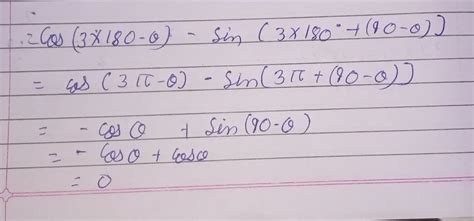 ∴ = Cos (3×180-θ) - Sin (3×180°+(90-θ))
= cos (3π-θ) - Sin(3π+(90-θ))
= - Cos θ + Sin(90-θ)
= - Cosθ + Cosθ
= 0